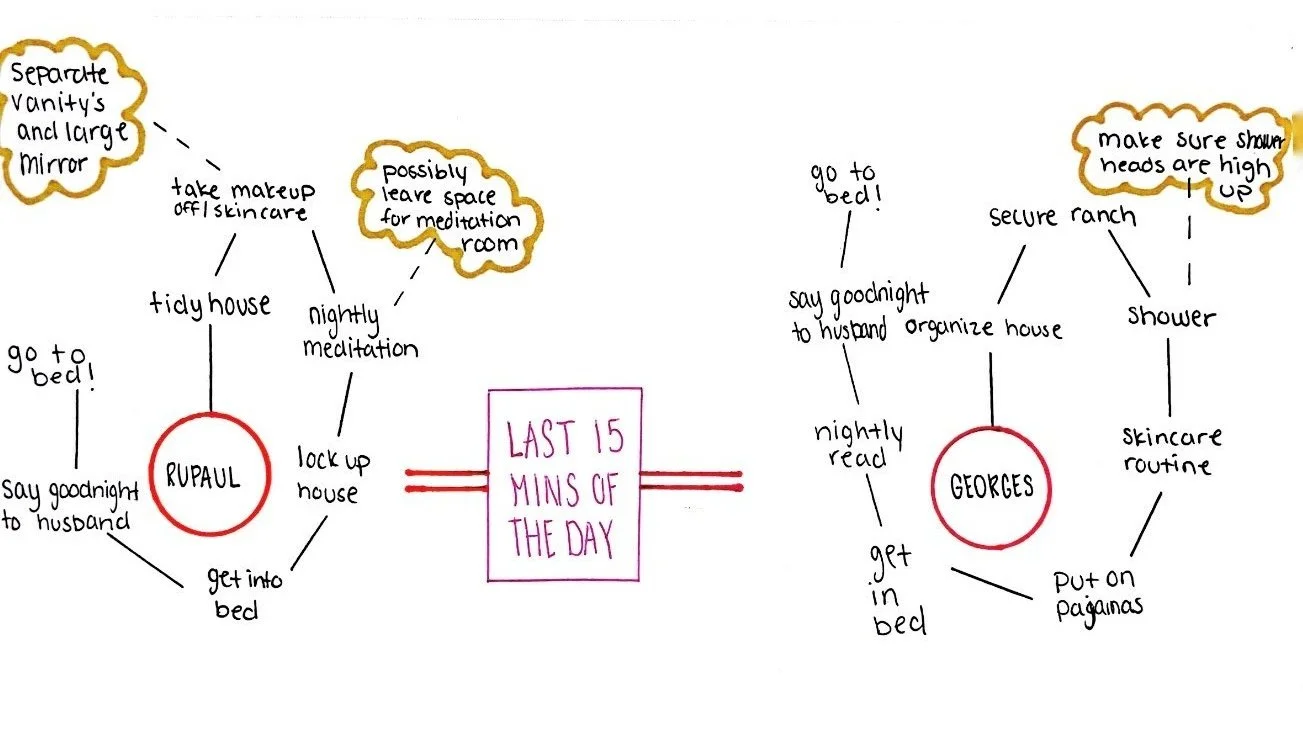 Separate
vanity's
and large
mirror
take makeup
off/skincare
possibly
leave space
for meditation
room
tidy house
nightly
meditation
go to
bed!
RUPAUL
lock up
house
say goodnight
to husband
get into
bed
LAST 15
MINS OF
THE DAY
make sure shower
heads are high
up
go to
bed!
secure ranch
say goodnight
to husband
organize house
shower
nightly
read
GEORGES
skincare
routine
get
in
bed
put on
pajamas